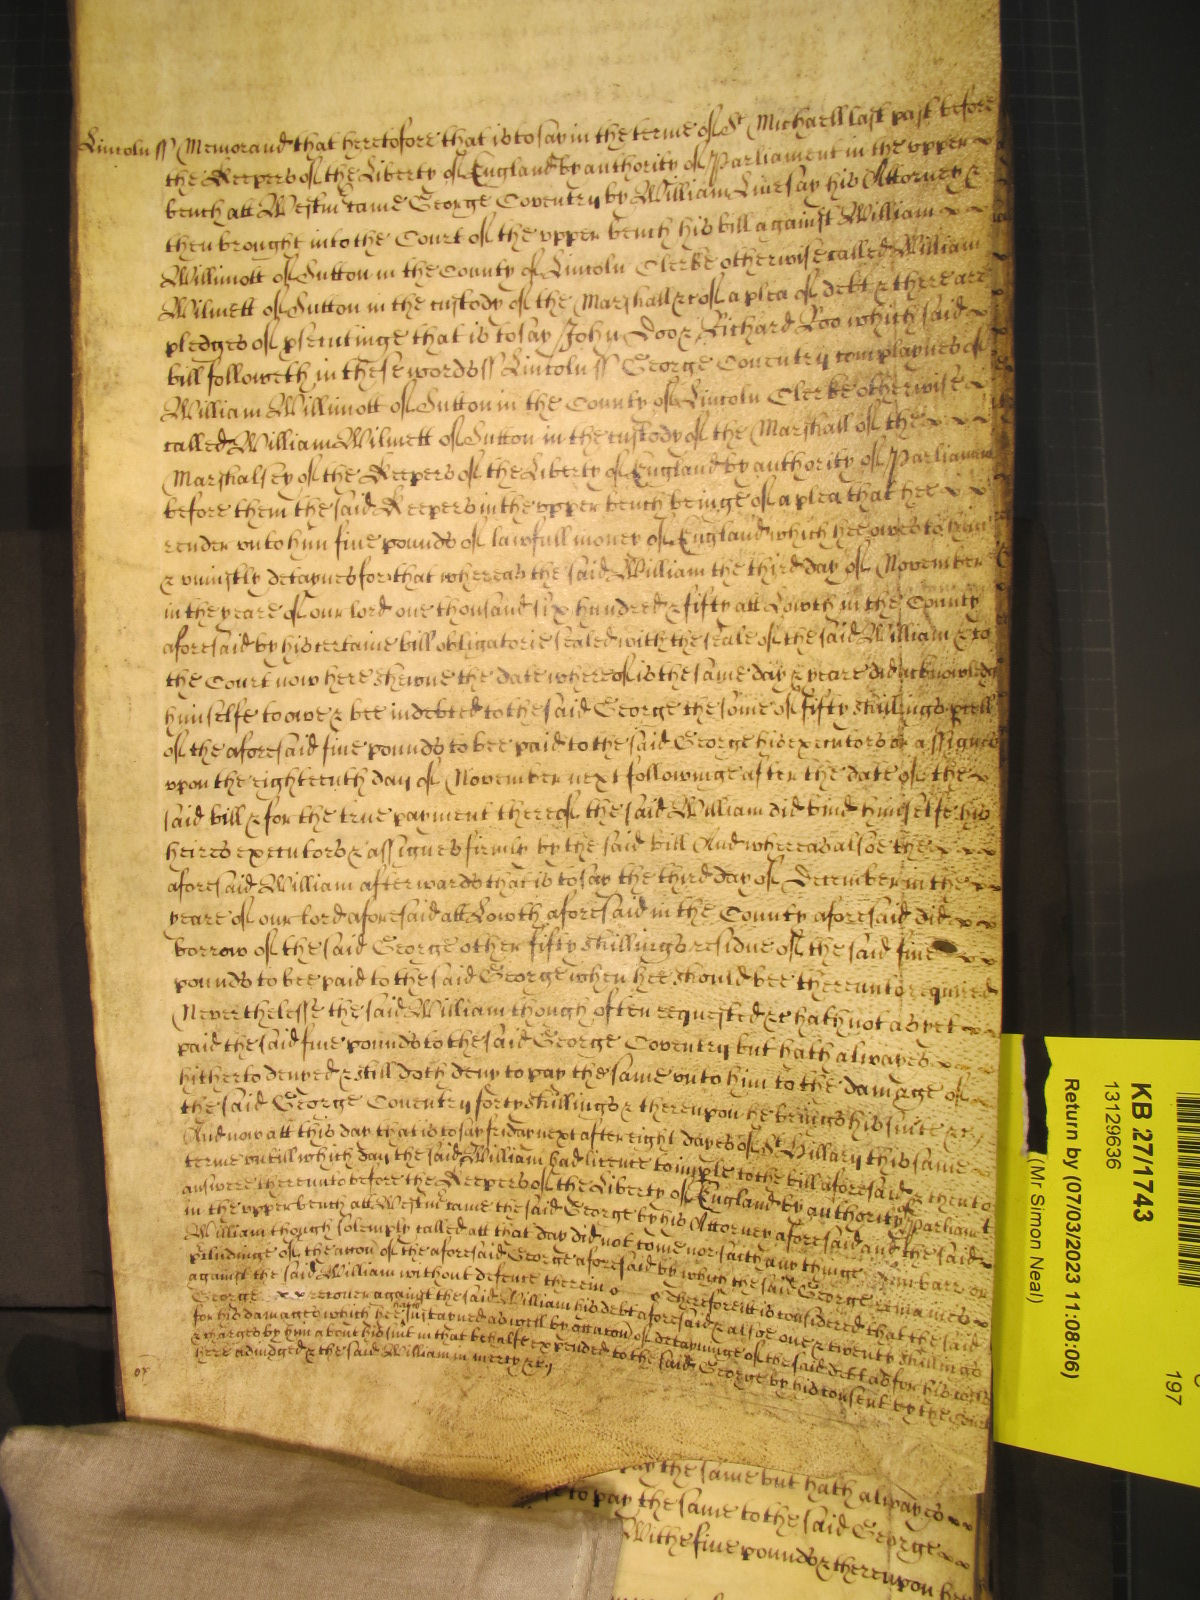 Lincoln ss Memorand that heretofore that is to say in the terme of St Michaell last past before
the Keepers of the Liberty of England by authority of Parliament in the upper
bench att Westm came George Coventry by William Liversay his Attorney &
then brought into the Court of the upper bench his bill against William
Willimott of Sutton in the County of Lincoln Clerke otherwise called William
Wilmett of Sutton in the custody of the Marshall &c of a plea of debt & there are
pledges of psecutinge that is to say John Doo & Richard Roo which said
bill followeth in these words ss Lincoln ss George Coventry complaynes of
William Willimott of Sutton in the County of Lincoln Clerke otherwise
called William Wilmett of Sutton in the custody of the Marshall of the
Marshalsey of the Keepers of the Liberty of England by authority of Parliam
before them the said Keepers in the upper bench beinge of a plea that hee
render unto him five pounds of lawfull money of England which hee owes to him
& uniustly detaynes for that whereas the said William the third day of November
in the yeare of our lord one thousand six hundred & fifty att Lowth in the County
aforesaid by his certaine bill obligatorie sealed with the seale of the said William & to
the Court now here shewne the date whereof is the same day & yeare did acknowledg
himselfe to owe & bee indebted to the said George the some of fifty shillings pcell
of the aforesaid five pounds to bee paid to the said George his executors or assignes
upon the eighteenth day of November next followinge after the date of the
said bill & for the true payment thereof the said William did bind himselfe his
heires executors & assignes firmly by the said bill And whereas alsoe the
aforesaid William afterwards that is to say the third day of December in the
yeare of our lord aforesaid att Lowth aforesaid in the County aforesaid did
borrow of the said George other fifty shillings residue of the said five
pounds to bee paid to the said George when hee should bee thereunto required
Neverthelesse the said William though often requested &c hath not as yet
paid the said five pounds to the said George Coventry but hath alwayes
hitherto denyed & still doth deny to pay the same unto him to the damage of
the said George Coventry forty shillings & thereupon he brings his suite &c
And now att this day that is to say friday next after eight dayes of St Hillary this same
terme untill which day the said William had licence to imple to the bill aforesaid & then to
answere thereunto before the Keepers of the Liberty of England by authority of Parliamt
in the upper bench att Westm came the said George by his Attorney aforesaid and the said
William though solemply called att that day did not come nor saith any thinge in barr or
pcludinge of the accon of the aforesaid George aforesaid by which the said George remaines
against the said William without defence therein Therefore itt is considered that the said
George recover against the said William his debt aforesaid & alsoe one & twenty shillings
for his damages which hee hath sustayned as well by occacon of detayninge of the said debt as for his costs
& charges by him about his suit in that behalfe expended to the said George by his consent by the Court
here adiudged & the said William in mercy &c
pay the same but hath alwayes
to pay the same to the said George
five pounds & thereupon
KB 27/1743
13129636
Return by (07/03/2023 11:08:06)
(Mr Simon Neal)
197